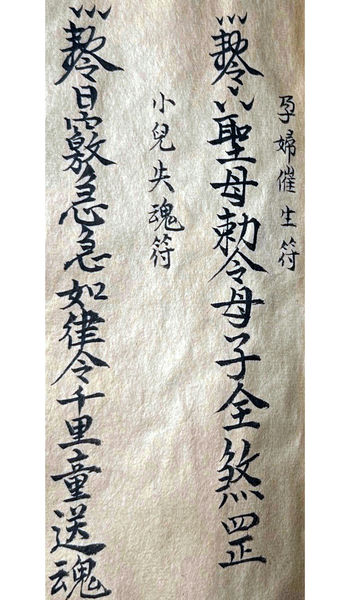 孕婦催生符
聖母勅令母子全煞罡
小兒失魂符
急急如律令千里童送魂